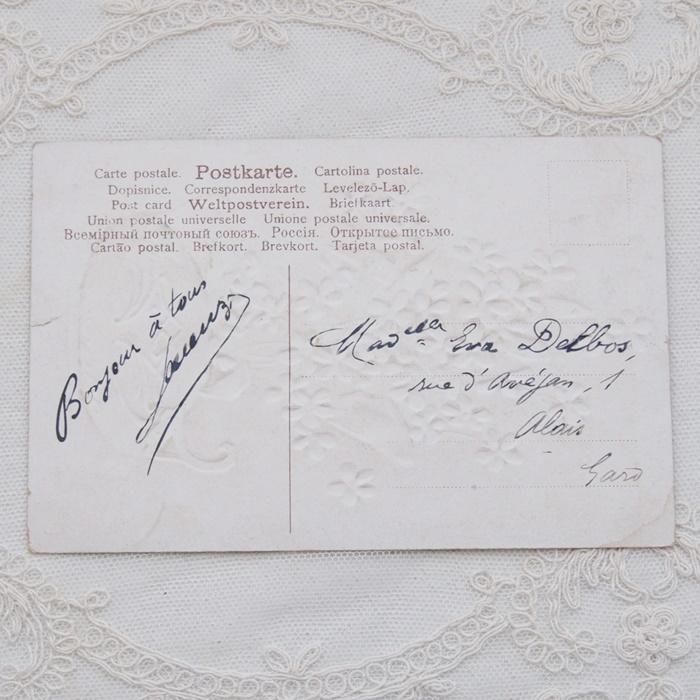 Carte postale. Postkarte. Cartolina postale.
Dopisnice. Correspondenzkarte Levelező-Lap.
Post card Weltpostverein. Briefkaart
Union postale universelle Unione postale universale.
Всемірный почтовый союзъ. Россія. Открытое письмо.
Cartão postal. Brefkort. Brevkort. Tarjeta postal.
Bonjour à tous
Madelle Eva Delbos,
rue d'Avéjan, 1
Alais
Gard